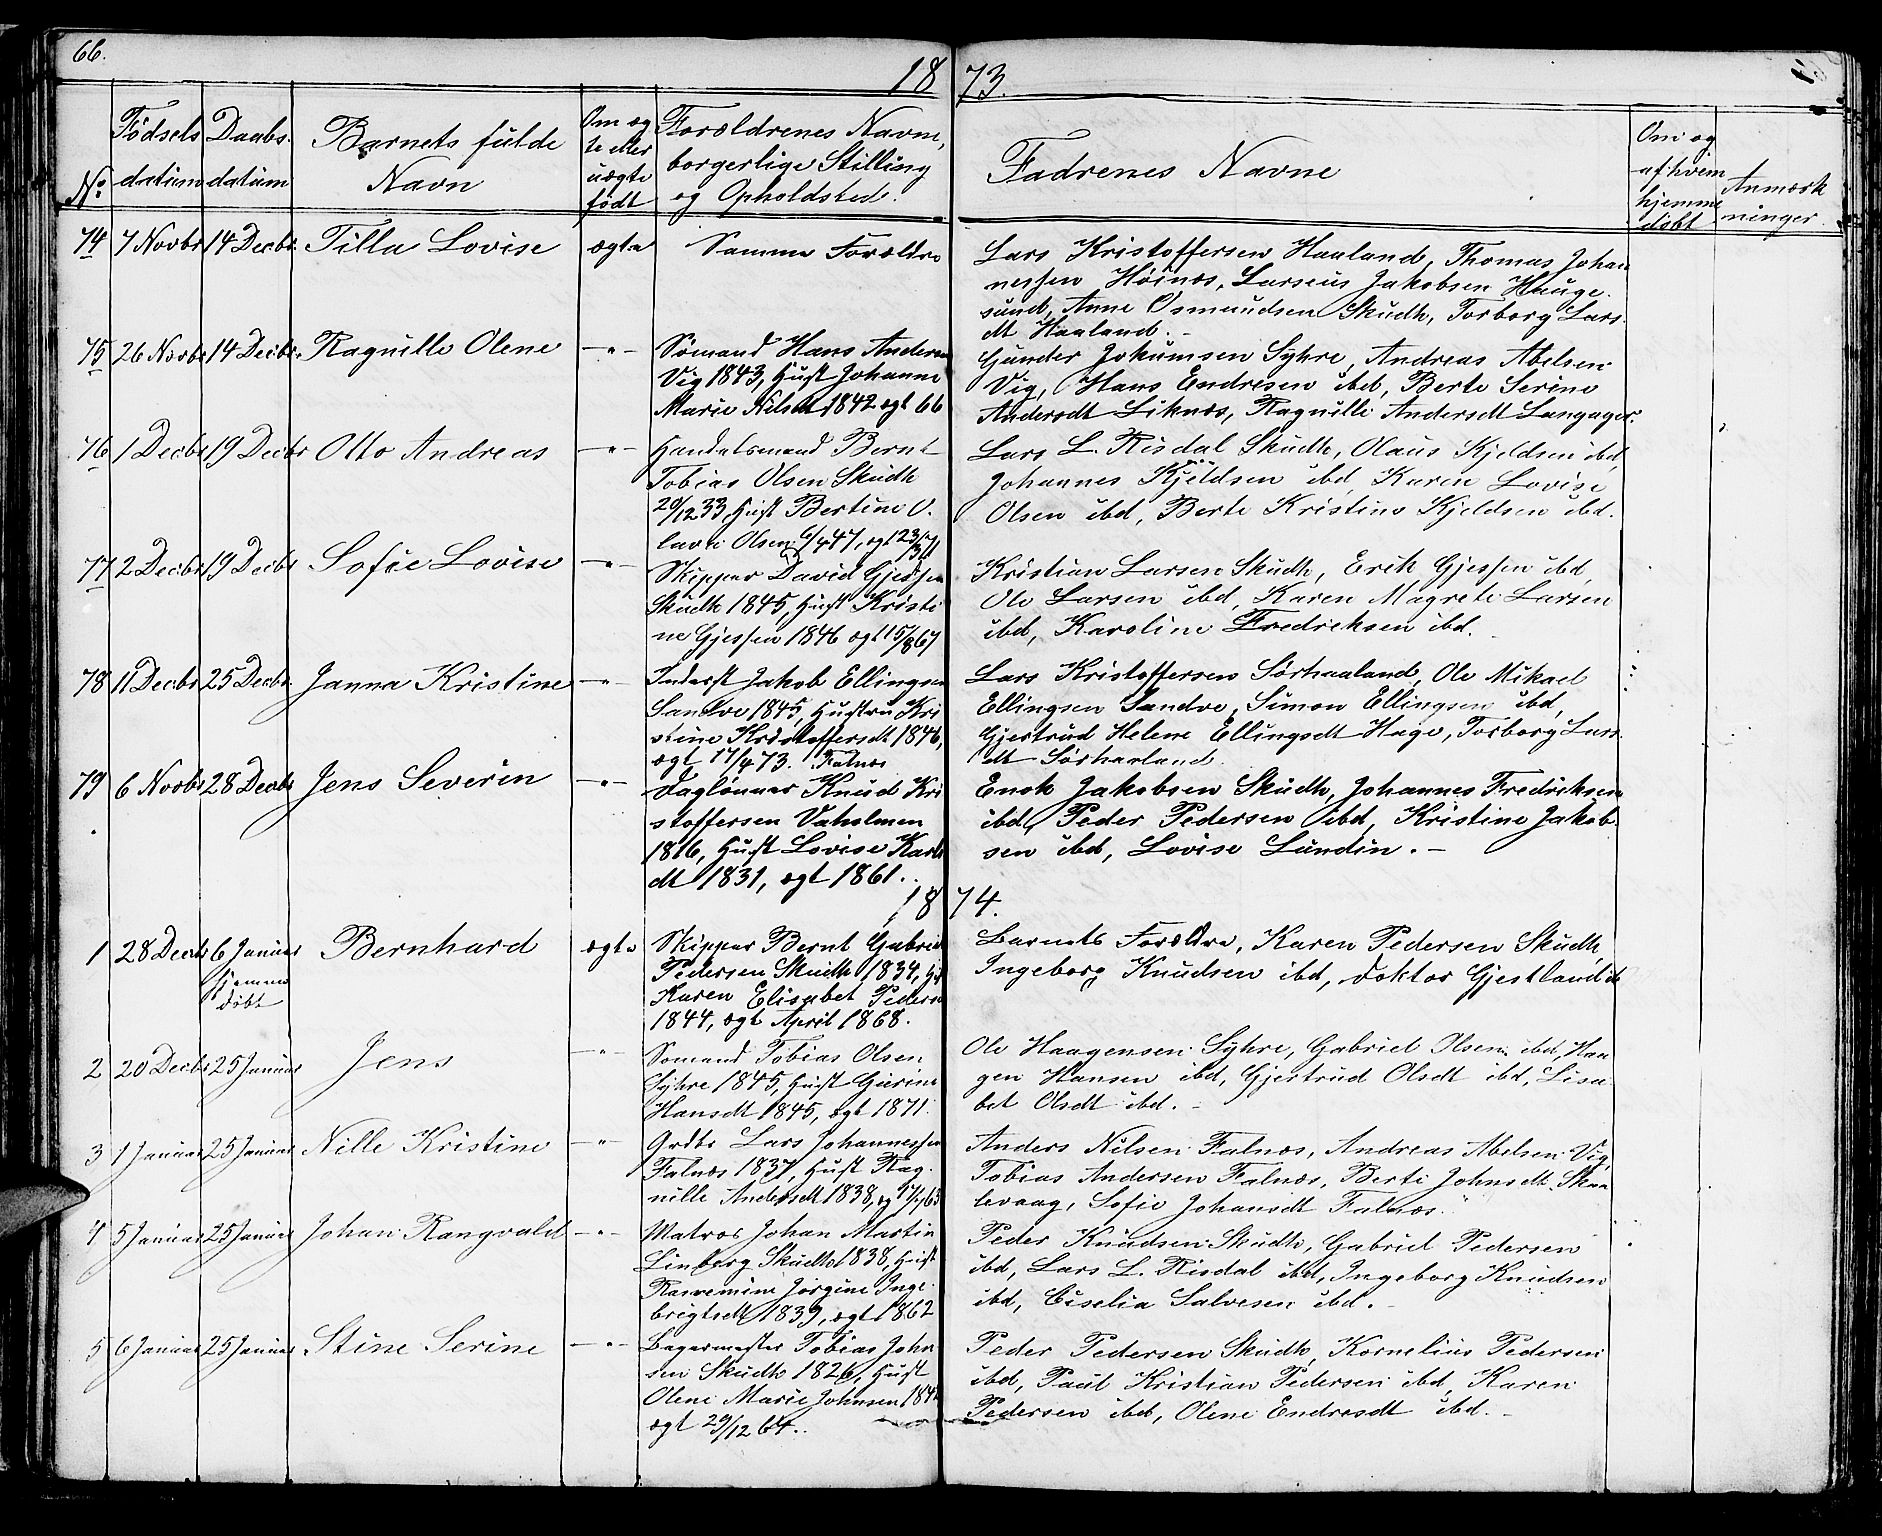 66.
1873.
No.
Födsels datum
Daabs datum
Barnets fulde Navn
Om ægte eller uægte födt
Forældrenes Navne, borgerlige Stilling og Opholdsted.
Fadrenes Navne
Om og af hvem hjemme döbt
Anmærkninger.
74 7 Novbr 14 Decbr. Tilla Lovise ægte Samme Forældre
Lars Kristoffersen Haaland, Thomas Johan
nessen Höinæs, Larseus Jakobsen Hauge
sund, Anne Osmundsen Skudh, Torborg Lars
dt Haaland.
75 26 Novbr 14 Decbr. Ragnille Olene -"- Sömand Hans Andersen
Vig 1843, Hust Johanne
Marie Nilsdt 1842 ægt 66
Gunder Jokumsen Syhre, Andreas Abelsen
Vig, Hans Endresen ibd, Berte Serine
Andersdt Liknæs, Ragnille Andersdt Langager.
76 1 Decbr 19 Decbr Otto Andreas -"- Handelsmand Bernt
Tobias Olsen Skudh
20/12 33, Hust Bertine O.
lave Olsen 6/4 47, ægt 23/3 71
Lars L. Risdal Skudh, Olaus Kjeldsen ibd,
Johannes Kjeldsen ibd, Karen Lovise
Olsen ibd, Berte Kristine Kjeldsen ibd.
77 2 Decbr 19 Decbr Sofie Lovise -"- Skipper David Gjessen
Skudh 1845, Hust Kristi
ne Gjessen 1846 ægt 15/8 67
Kristian Larsen Skudh, Erik Gjessen ibd,
Ole Larsen ibd, Karen Magrete Larsen
ibd, Karoline Fredriksen ibd.
78 11 Decbr 25 Decbr. Janna Kristine -"- Inderst Jakob Ellingsen
Sandve 1845, Hustru Kri
stine Kristoffersdt 1846,
ægt 17/4 73.
Lars Kristoffersen Sörhaaland, Ole Mikael
Ellingsen Sandve, Simon Ellingsen ibd,
Gjertrud Helene Ellingsdt Hage, Torborg Lars
dt Sörhaaland.
79 6 Novbr 28 Decbr Jens Severin -"- Falnæs
Daglönner Knud Kri
stoffersen Vaholmen
1816, Hust Lovise Karls
dt 1831, ægt 1861.
Enok Jakobsen Skudh, Johannes Fredriksen
ibd, Peder Pedersen ibd, Kristine Jakob
sen ibd, Lovise Lundin.
1874.
1 28 Decbr 6 Januar Hjemme döbt Bernhard ægte Skipper Bernt Gabriel
Pedersen Skudh 1834, H
Karen Elisabet Peders
1844, ægt April 1868.
Barnets Forældre, Karen Pedersen Skudh,
Ingeborg Knudsen ibd, Doktor Gjestland ib
2 20 Decbr 25 Januar Jens -"- Sömand Tobias Olsen
Syhre 1845, Hust Gurine
Hansdt 1845, ægt 1871.
Ole Haagensen Syhre, Gabriel Olsen ibd, Haa
gen Hansen ibd, Gjertrud Olsdt ibd, Lisa
bet Olsdt ibd.
3 1 Januar 25 Januar Nille Kristine -"- Grdbr Lars Johannessen
Falnæs 1837, Hust Rag
nille Andersdt 1838, æg 17/7 63
Anders Nilsen Falnæs, Andreas Abelsen Vig,
Tobias Andersen Falnæs, Berte Johnsdt Skaa
levaag, Sofie Johansdt Falnæs.
4 5 Januar 25 Januar Johan Rangvald -"- Matros Johan Martin
Linberg Skudh 1838, Hust
Rasmine Jörgine Inge
brigtsdt 1839, ægt 1862
Peder Knudsen Skudh, Gabriel Pedersen
ibd, Lars L. Risdal ibd, Ingeborg Knudsen
ibd, Ciselia Salvesen ibd.
5 6 Januar 25 Januar Stine Serine -"- Bagermester Tobias John
sen Skudh 1826, Hust
Olene Marie Johnsen 184
ægt 29/12 64.
Peder Pedersen Skudh, Kornelius Pedersen
ibd, Paul Kristian Pedersen ibd, Karen
Pedersen ibd, Olene Endresdt ibd.